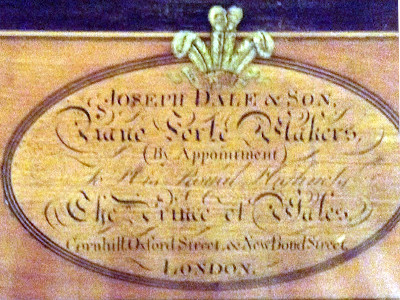 JOSEPH DALE & SON,
Piano Forte Makers,
(By Appointment)
to His Royal Highness
The Prince of Wales,
Cornhill, Oxford Street, & New Bond Street
LONDON.